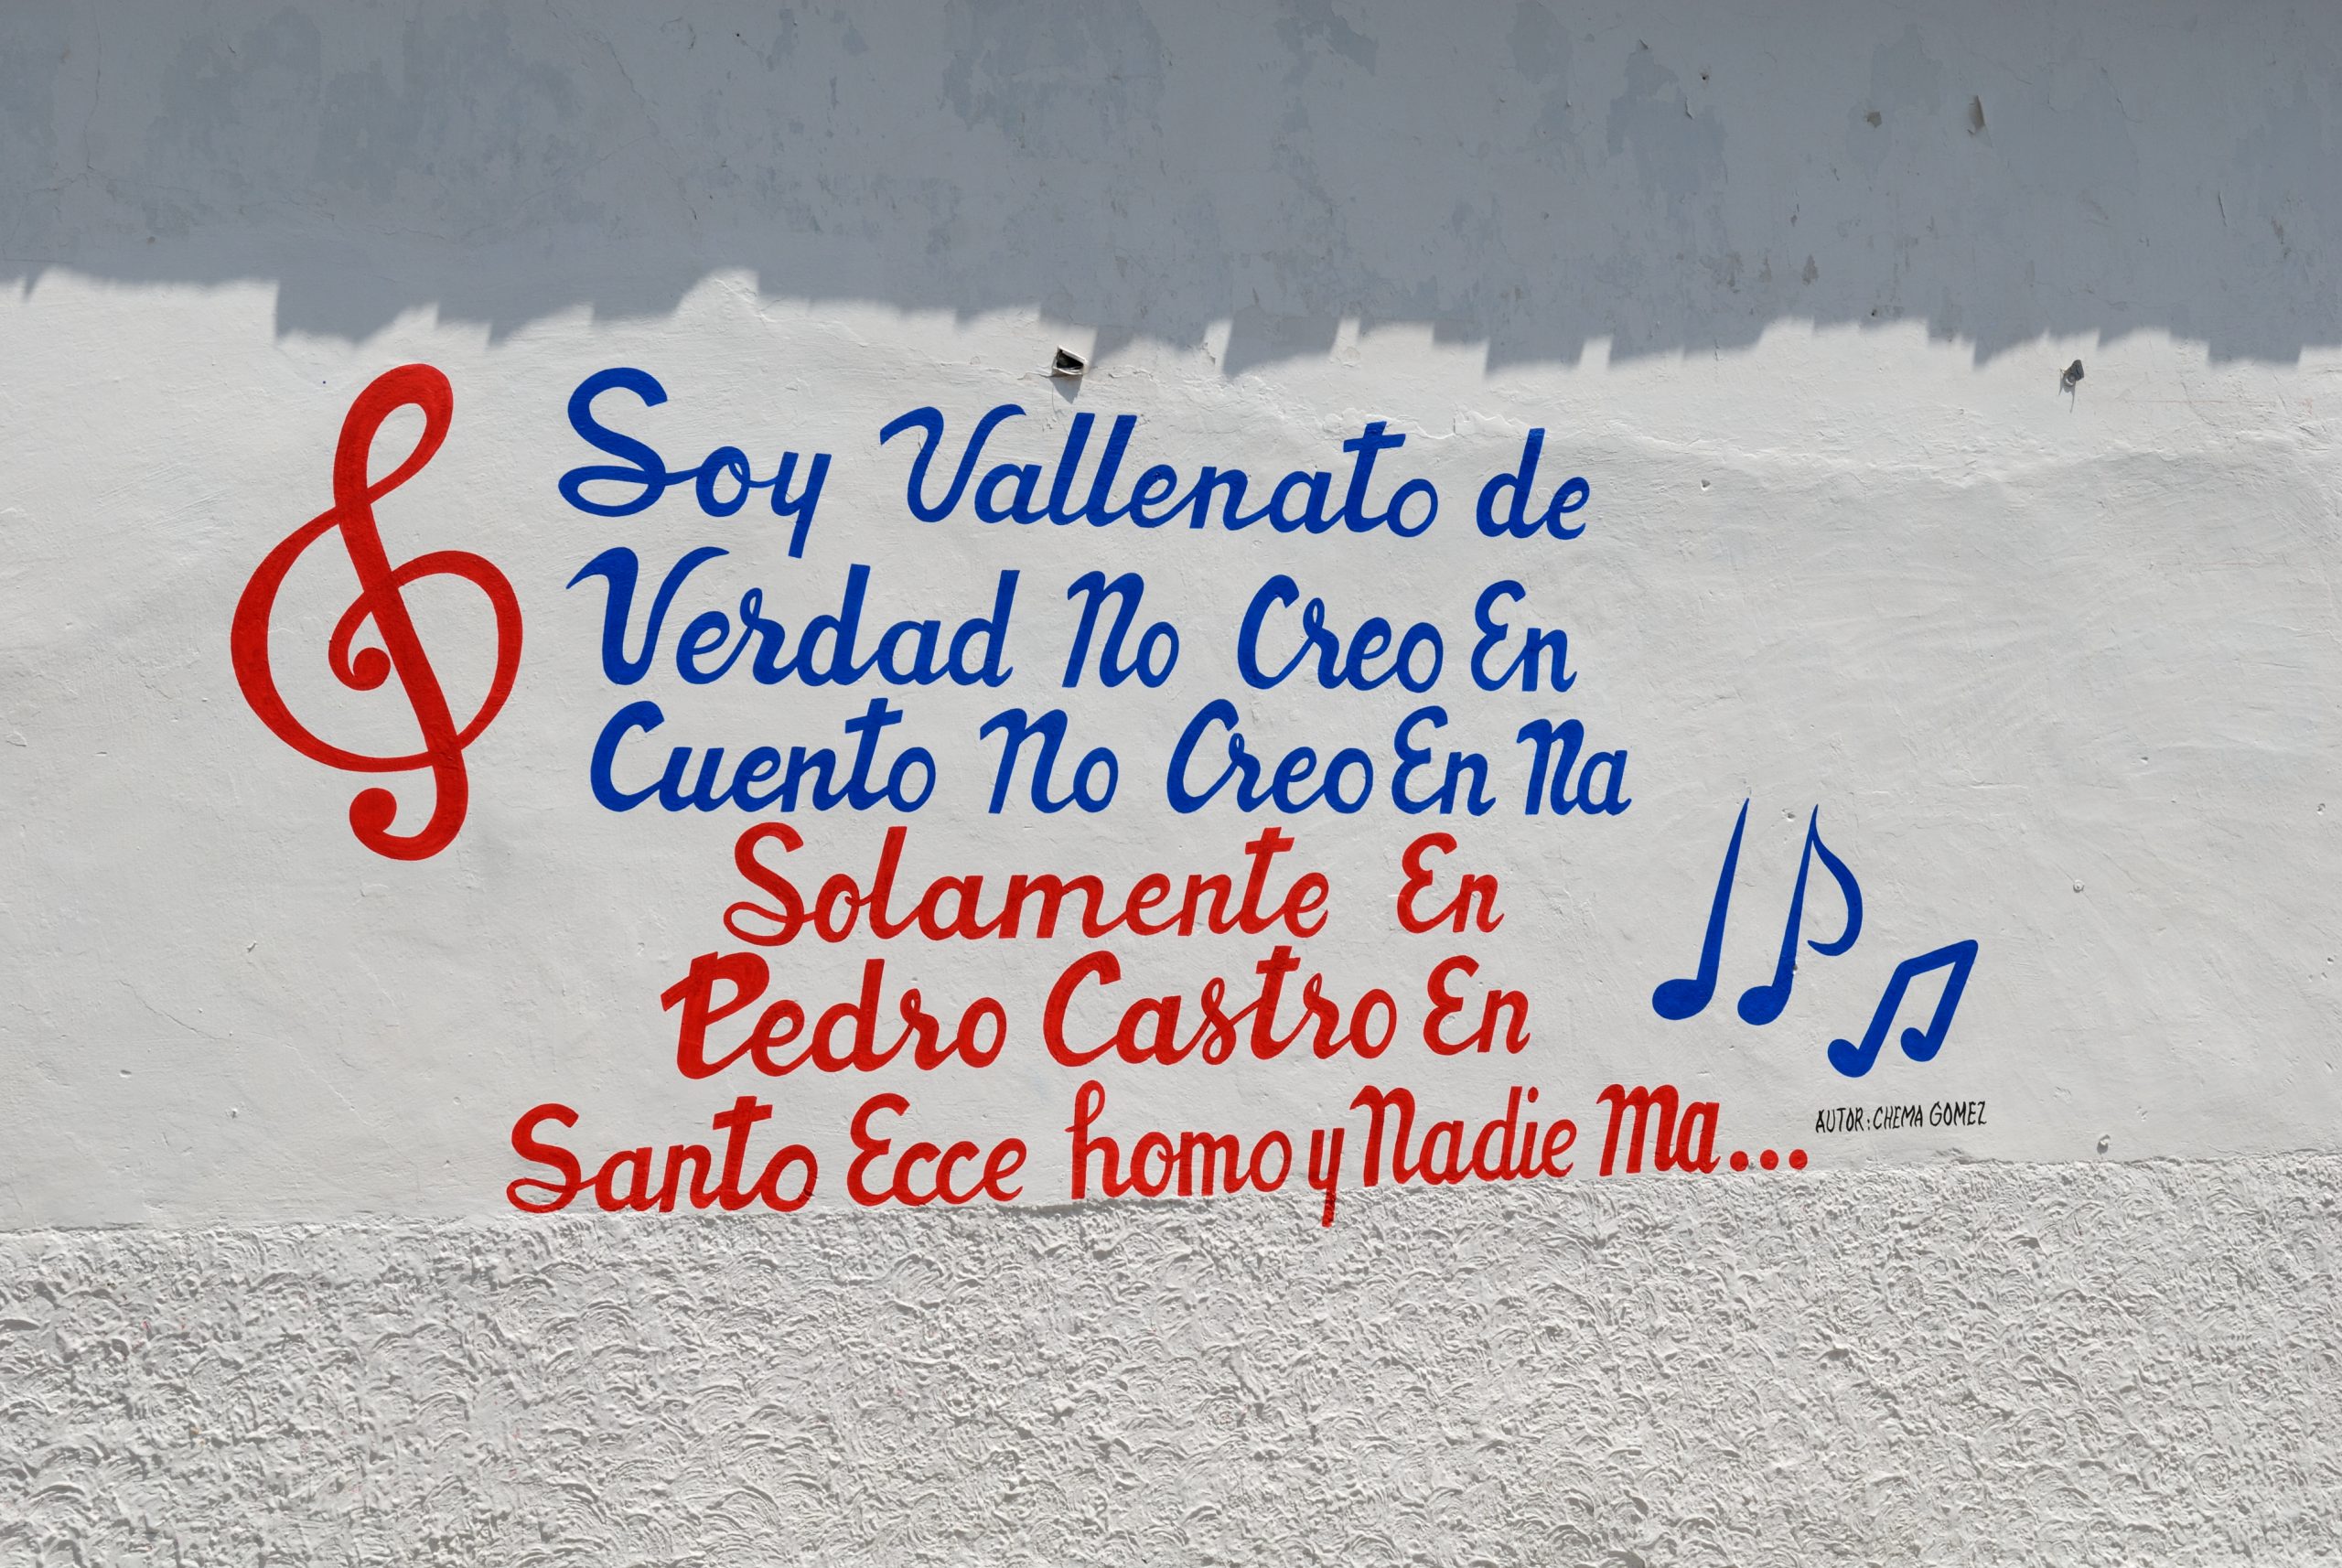 Soy Vallenato de
Verdad No Creo En
Cuento No Creo En Na
Solamente En
Pedro Castro En
Santo Ecce homo y Nadie Ma...
AUTOR: CHEMA GOMEZ